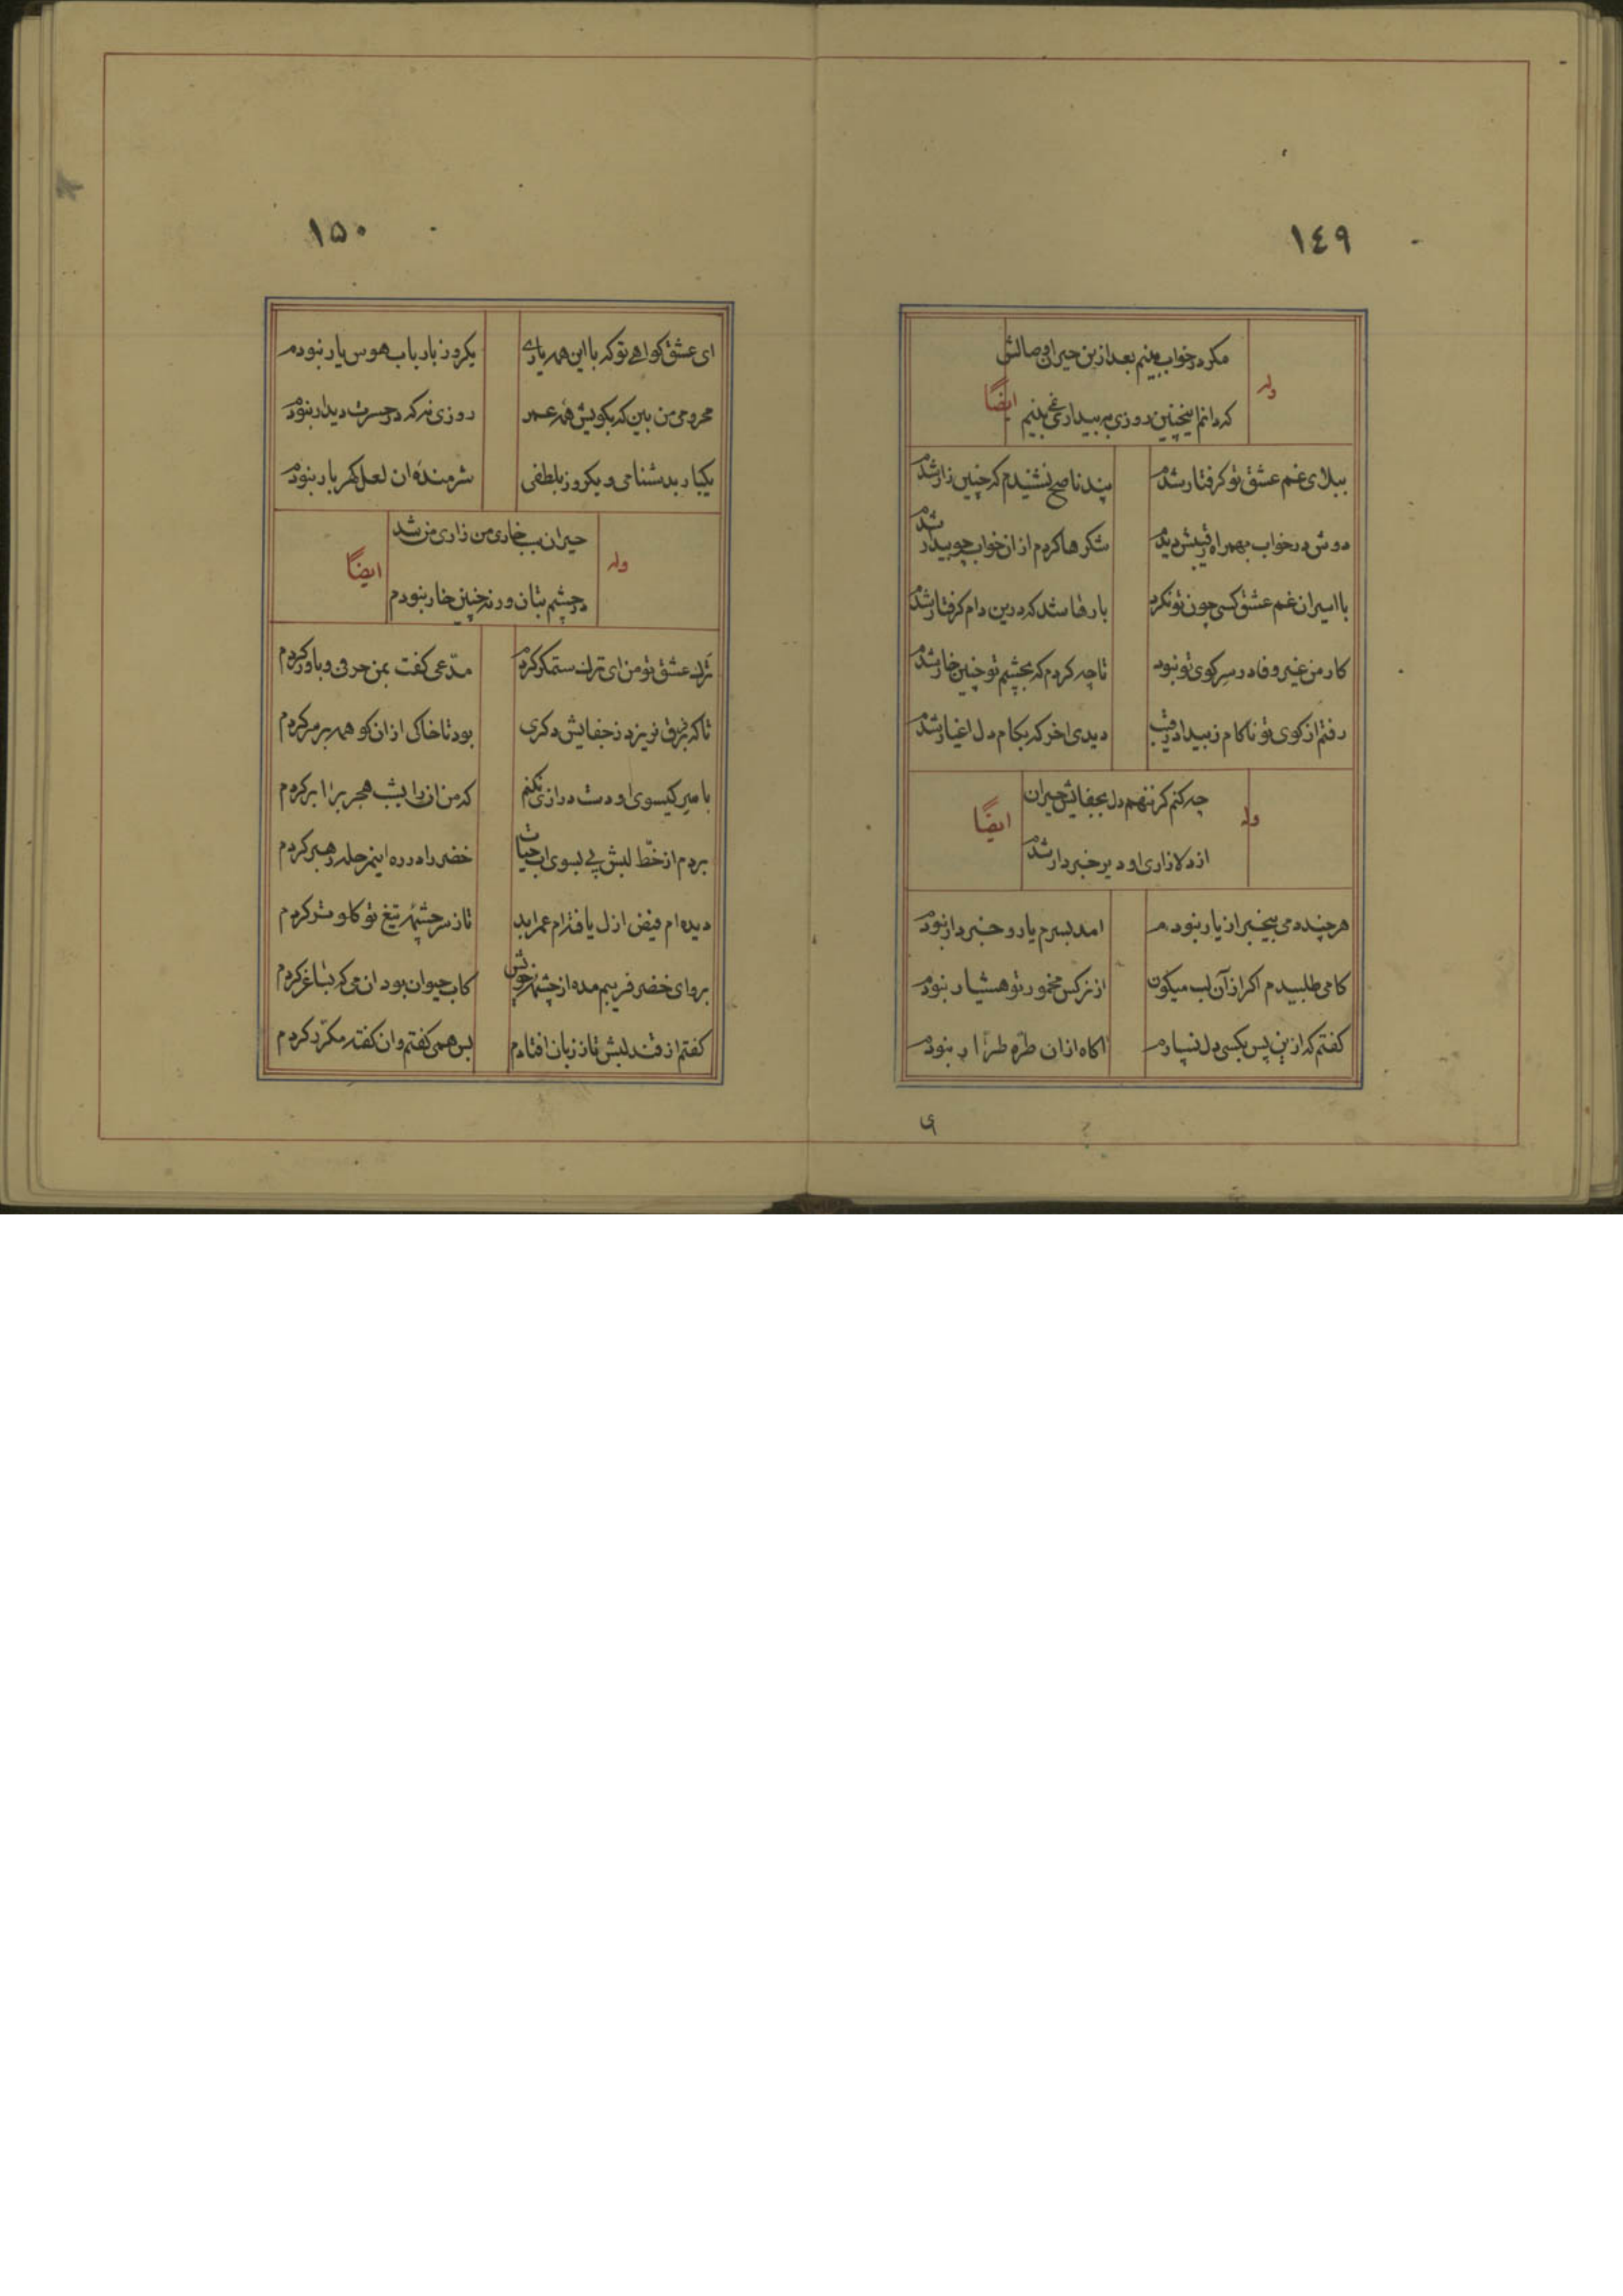 ١٤٩
مکر در خواب بینم بعد ازین حیران وصالش
وله
ایضاً
که دانم اینچنین روزی به بیداری نمی بینم
ببلای غم عشق تو کرفتار شدم
پند ناصح نشنیدم که چنین زار شدم
دوش در خواب بهمراه رقیبش دیدم
شکرها کردم از ان خواب چو بیدار شدم
با اسیران غم عشق کسی چون تو نکرد
کار من غیر وفا در سر کوی تو نبود
تا چه کردم که بچشم تو چنین خار شدم
رفتم از کوی تو ناکام ز بیداد رقیب
دیدی اخر که بکام دل اغیار شدم
چه کنم کر ننهم دل بجفایش حیران
وله
ایضاً
از دلازاری او دیر خبردار شدم
هر چند دمی بیخبر از یار نبودم
امد بسرم یار و خبردار نبودم
کامی طلبیدم اکر از آن لب میکون
از نرکس مخمور تو هشیار نبودم
کفتم که ازین پس بکسی دل نسپارم
اکاه از ان طره طرار نبودم
١٥٠
ای عشق کواهی تو که با این همه یاری
یکروز بارباب هوس یار نبودم
محرومی من بین که بکویش همه عمر
روزی نه که در حسرت دیدار نبودم
یکبار بدشنامی و یکروز بلطفی
شرمنده ان لعل کهربار نبودم
حیران سبب خاری من زاری من شد
وله
ایضاً
در چشم بتان ورنه چنین خار نبودم
ترک عشق تو من ای ترک ستمکر کردم
مدّعی کفت بمن حرفی و باور کردم
تا که بر فرق نریزد ز جفایش دکری
بود تا خاکی از ان کو همه بر سر کردم
با سر کیسوی او دست درازی نکنم
بردم از خطّ لبش پی بسوی اب حیات
خضر را در ره این مرحله رهبر کردم
دیده ام فیض ازل یافته ام عمر ابد
تا ز سرچشمه تیغ تو کلو تر کردم
برو ای خضر فریبم مده از چشمه خویش
کاب حیوان بود ان می که بساغر کردم
کفتم از قند لبش تا ز زبان افتادم
بس همی کفتم وان کفته مکرّر کردم